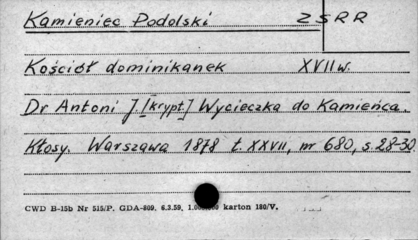 Kamieniec Podolski ZSRR
Kościół dominikanek XVII w.
Dr Antoni J. [krypt.] Wycieczka do Kamieńca.
Kłosy. Warszawa 1878 t. XXVII, nr 680, s. 28-30
CWD B-15b Nr 515/P. GDA-809. 6.3.59. karton 180/V.